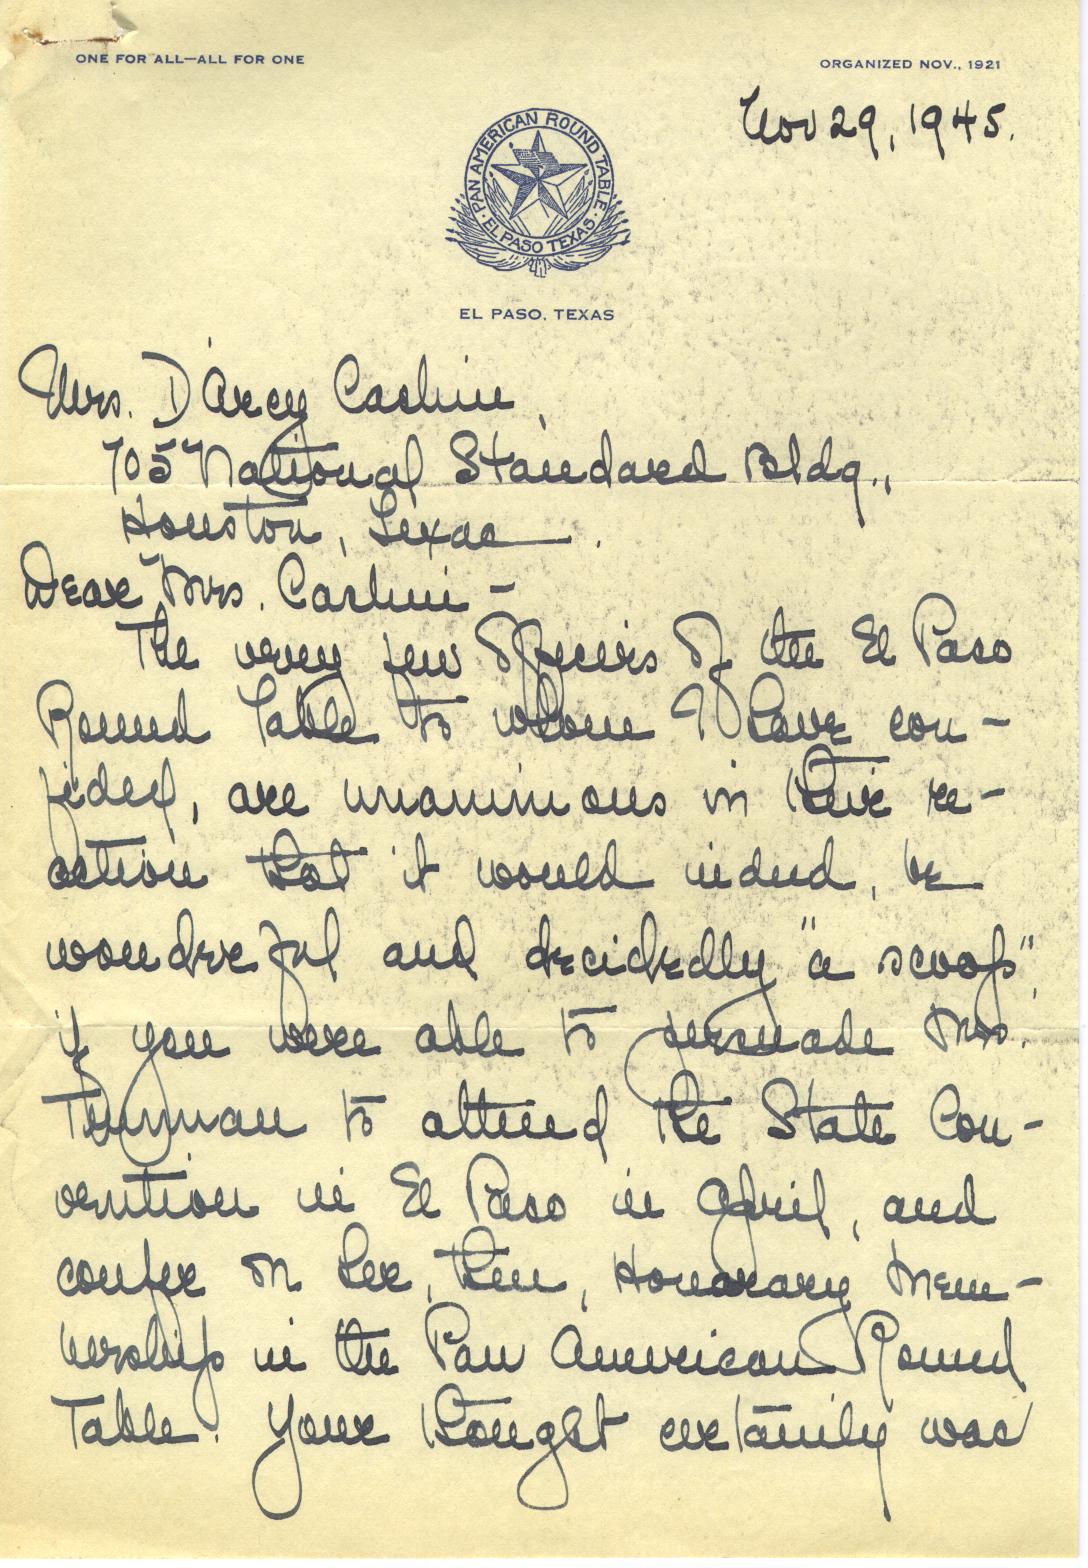 ONE FOR ALL—ALL FOR ONE
ORGANIZED NOV., 1921
Nov 29, 1945.
PAN AMERICAN ROUND TABLE
EL PASO TEXAS
EL PASO, TEXAS
Mrs. D'Arcy Cashin,
705 National Standard Bldg.,
Houston, Texas.
Dear Mrs. Cashin -
The very few officers of the El Paso
Round Table to whom I have con-
fided, are unanimous in their re-
action that it would indeed, be
wonderful and decidedly "a scoop",
if you were able to persuade Mrs.
Truman to attend the State Con-
vention in El Paso in April, and
confer on her, then, Honorary Mem-
bership in the Pan American Round
Table. Your thought certainly was